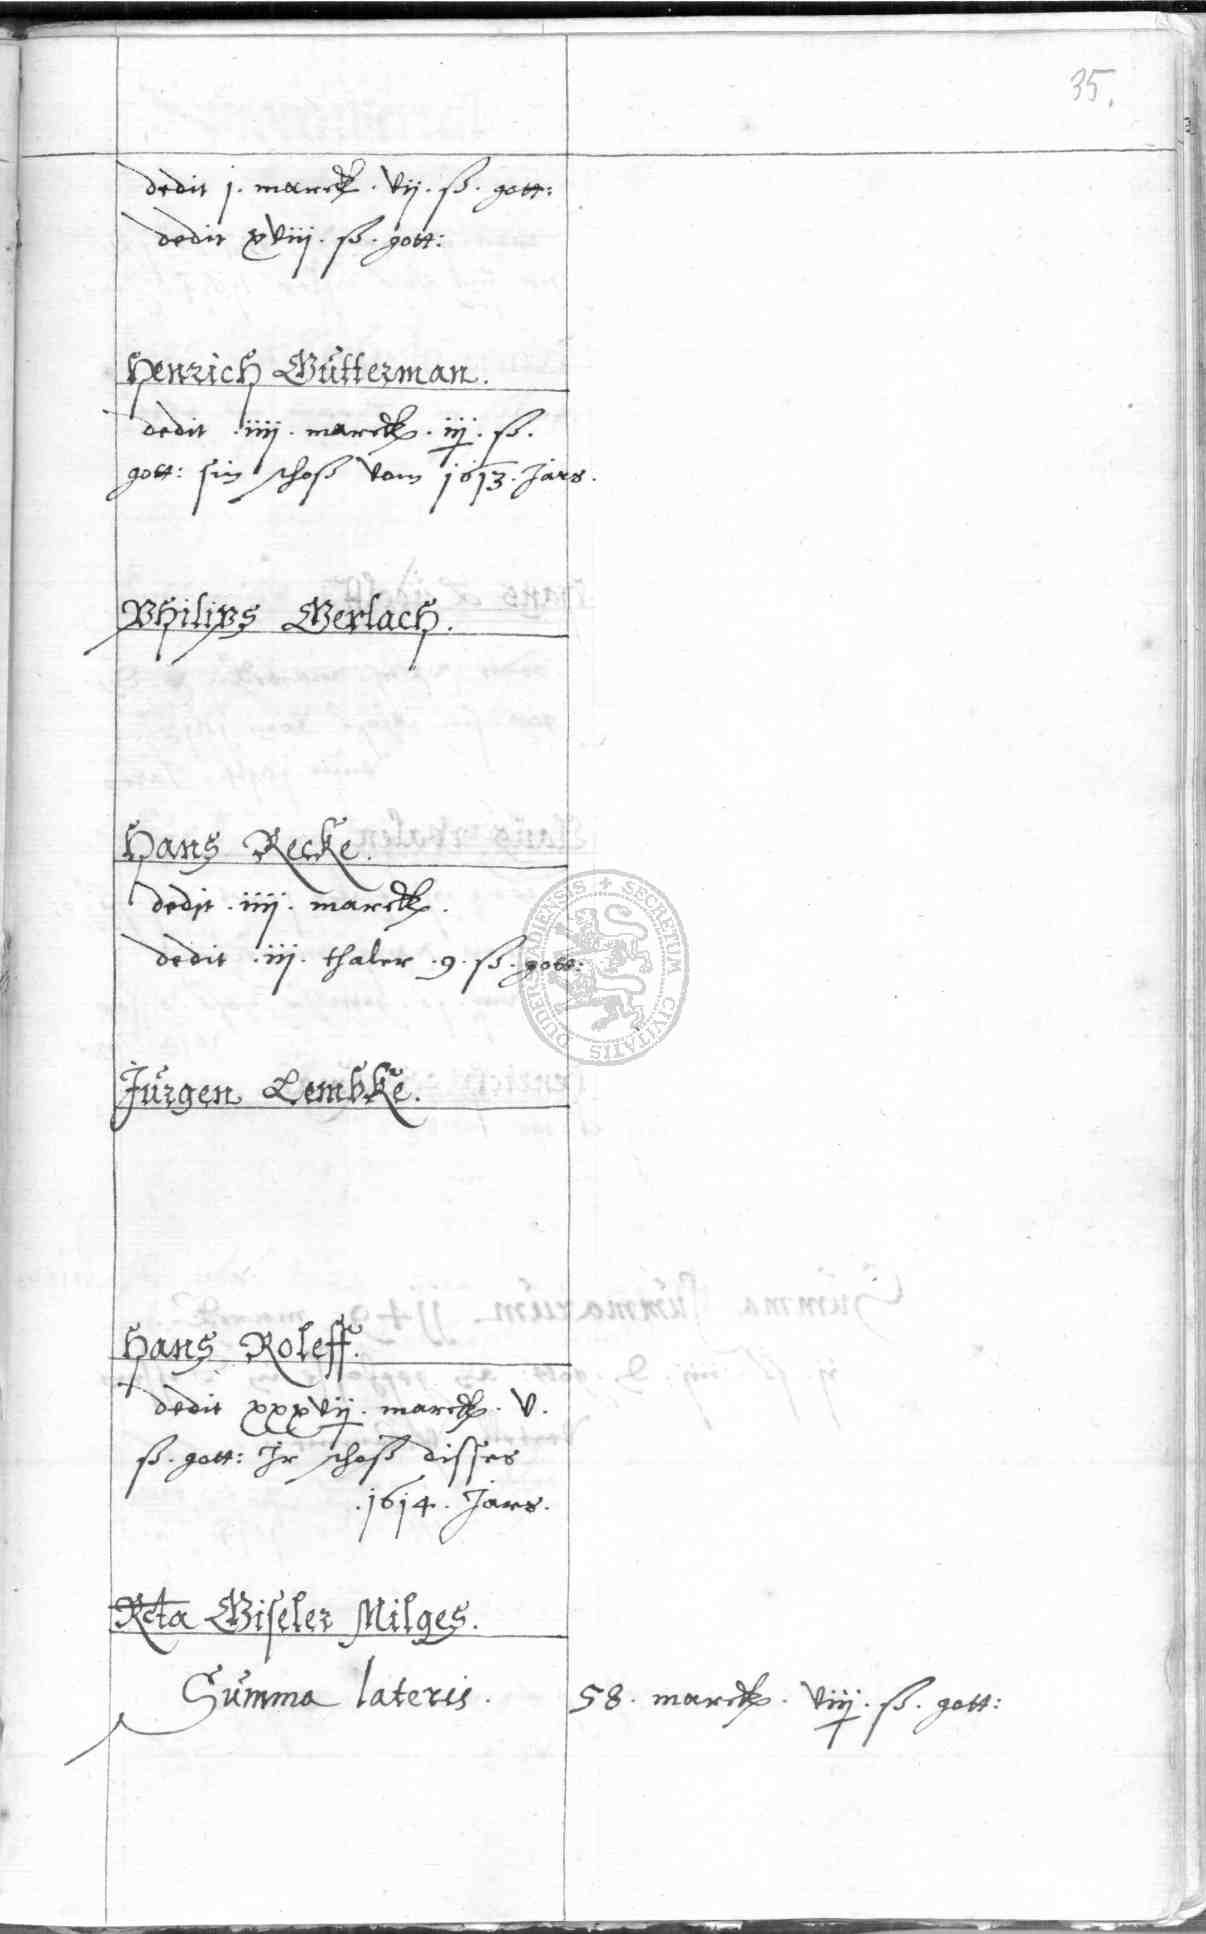 35.
dedit j. marck. vij. ß. gott:
dedit xviij. ß. gott:
Henrich Gütterman.
dedit .iiij. marck. iij. ß.
gott: sin schoß vom 1613. Jars.
Philips Gerlach.
Hans Recke.
dedit .iiij. marck.
dedit .iij. thaler .9. ß. gott:
Jürgen Lembke.
Hans Roleff.
dedit xxxvij. marck. v.
ß. gott: Ir schoß disses
.1614. Jars.
Rcta Giseler Milges.
Summa lateris. 58. marck. viij. ß. gott:
SECRETUM CIVITATIS DUDERSTADIENSIS